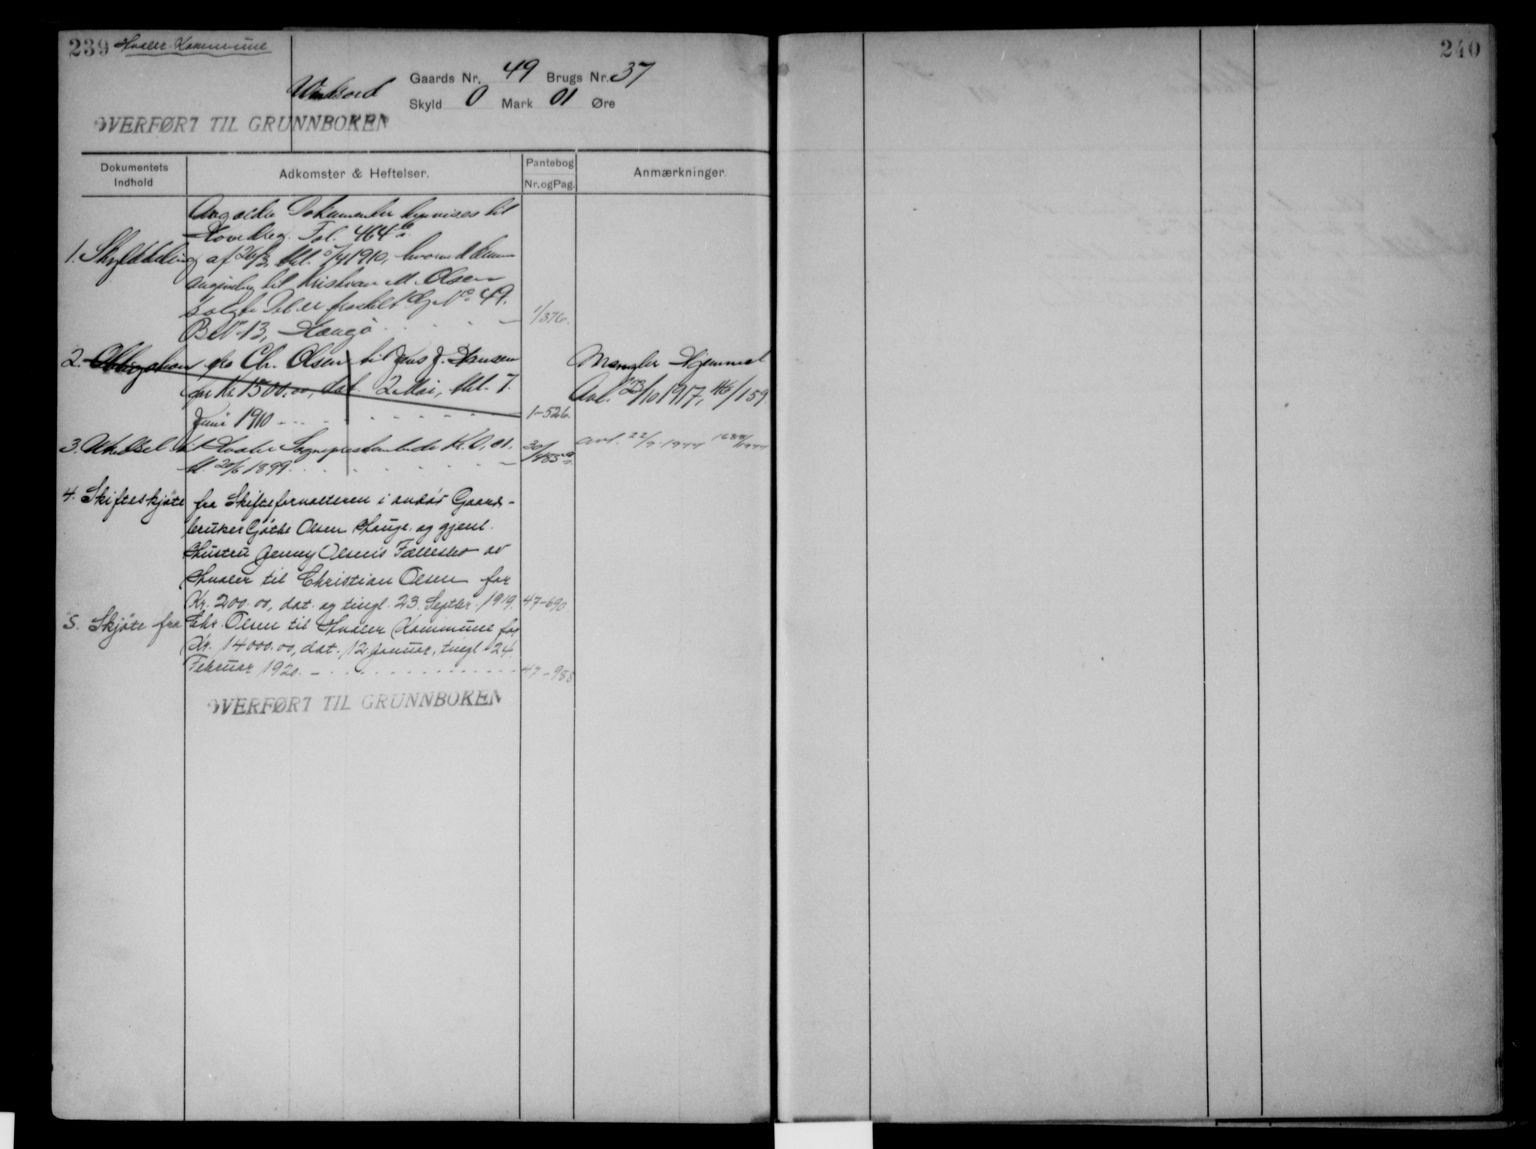 239 Hvaler Kommune
240
Gaards Nr. 49 Brugs Nr. 37
Skyld 0 Mark 01 Øre
OVERFØRT TIL GRUNNBOKEN
Dokumentets Indhold
Adkomster & Heftelser.
Pantebog
Nr. og Pag.
Anmærkninger.
Ang. ældre Dokumenter henvises til
Hovedreg. Fol. 464
1. Skylddeling af 26/3, thl. 1910, hvorved denne
til Kristian M. Olsen
solgte Del er fraskilt Nº 49.
B. Nº 13, 1/376.
2. Obligation fra Chr. Olsen til Jens J. Hansen Mangler Hjemmel
for Kr. 1500.00, dat. 2 Mai, thl. 7. Avl. 23/10 1917, 46/159
Juni 1910 1-526.
3. til Hvaler Kr. 0,01. 30/ avl. 22/ 1944
thl. 20/6 1899
4. Skifteskjøte fra Skifteforvalteren i avdøde Gaard-
bruker Gjøthe Olsen Hauge og gjenl.
Hustru Jenny Olsens Fællesbo av
Hvaler til Christian Olsen for
Kr. 200.00, dat. og tingl. 23. Septbr. 1919. 47-690
5. Skjøte fra Chr. Olsen til Hvaler Kommune for
Kr. 14000.00, dat. 12 Januar, tingl. 24.
Februar 1920. 47-988
OVERFØRT TIL GRUNNBOKEN